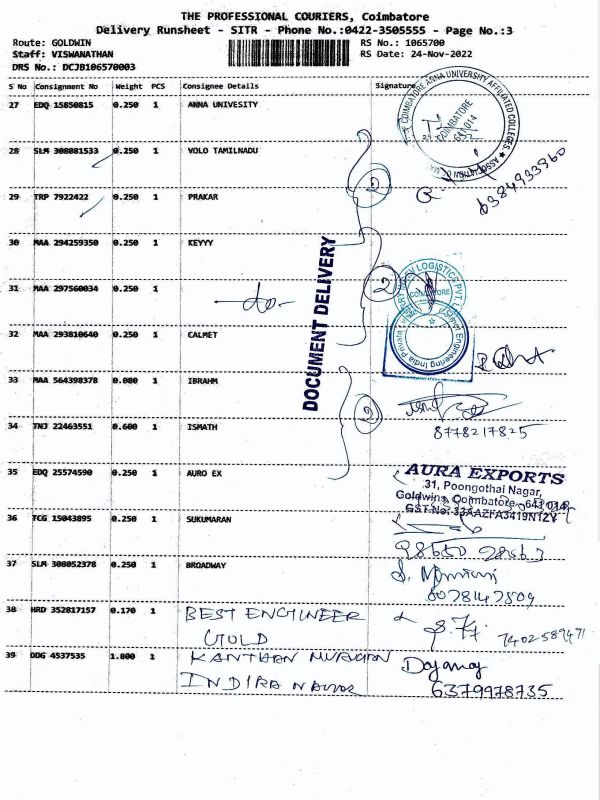 THE PROFESSIONAL COURIERS, Coimbatore
Delivery Runsheet - SITR - Phone No.:0422-3505555 - Page No.:3
Route: GOLDWIN RS No.: 1065700
Staff: VISWANATHAN RS Date: 24-Nov-2022
DRS No.: DCJB106570003
S No Consignment No Weight PCS Consignee Details Signature
27 EDQ 15850815 0.250 1 ANNA UNIVESITY
COIMBATORE ANNA UNIVERSITY AFFILIATED COLLEGES ★ ASSOCIATION OF
COIMBATORE
641 014
28 SLM 308081533 0.250 1 VOLO TAMILNADU
2
6384933960
29 TRP 7922422 0.250 1 PRAKAR
30 MAA 294259350 0.250 1 KEYYY
DOCUMENT DELIVERY
31 MAA 297560034 0.250 1 -do-
2
LOGISTICS PVT. L
Engineering India Private
32 MAA 293810640 0.250 1 CALMET
33 MAA 564398378 0.080 1 IBRAHM
2
34 TNJ 22463551 0.600 1 ISMATH
8778217825
35 EDQ 25574590 0.250 1 AURO EX
AURA EXPORTS
31, Poongothai Nagar,
Goldwins, Coimbatore - 641 014
GST No: 33AAZFA3419N1ZY
36 TCG 15043895 0.250 1 SUKUMARAN
37 SLM 308052378 0.250 1 BROADWAY
38 HRD 352817157 0.170 1 BEST ENGINEER
GOLD
39 DDG 4537535 1.800 1 KANTHAN MURUGAN
INDIRA NAGAR
6379978735